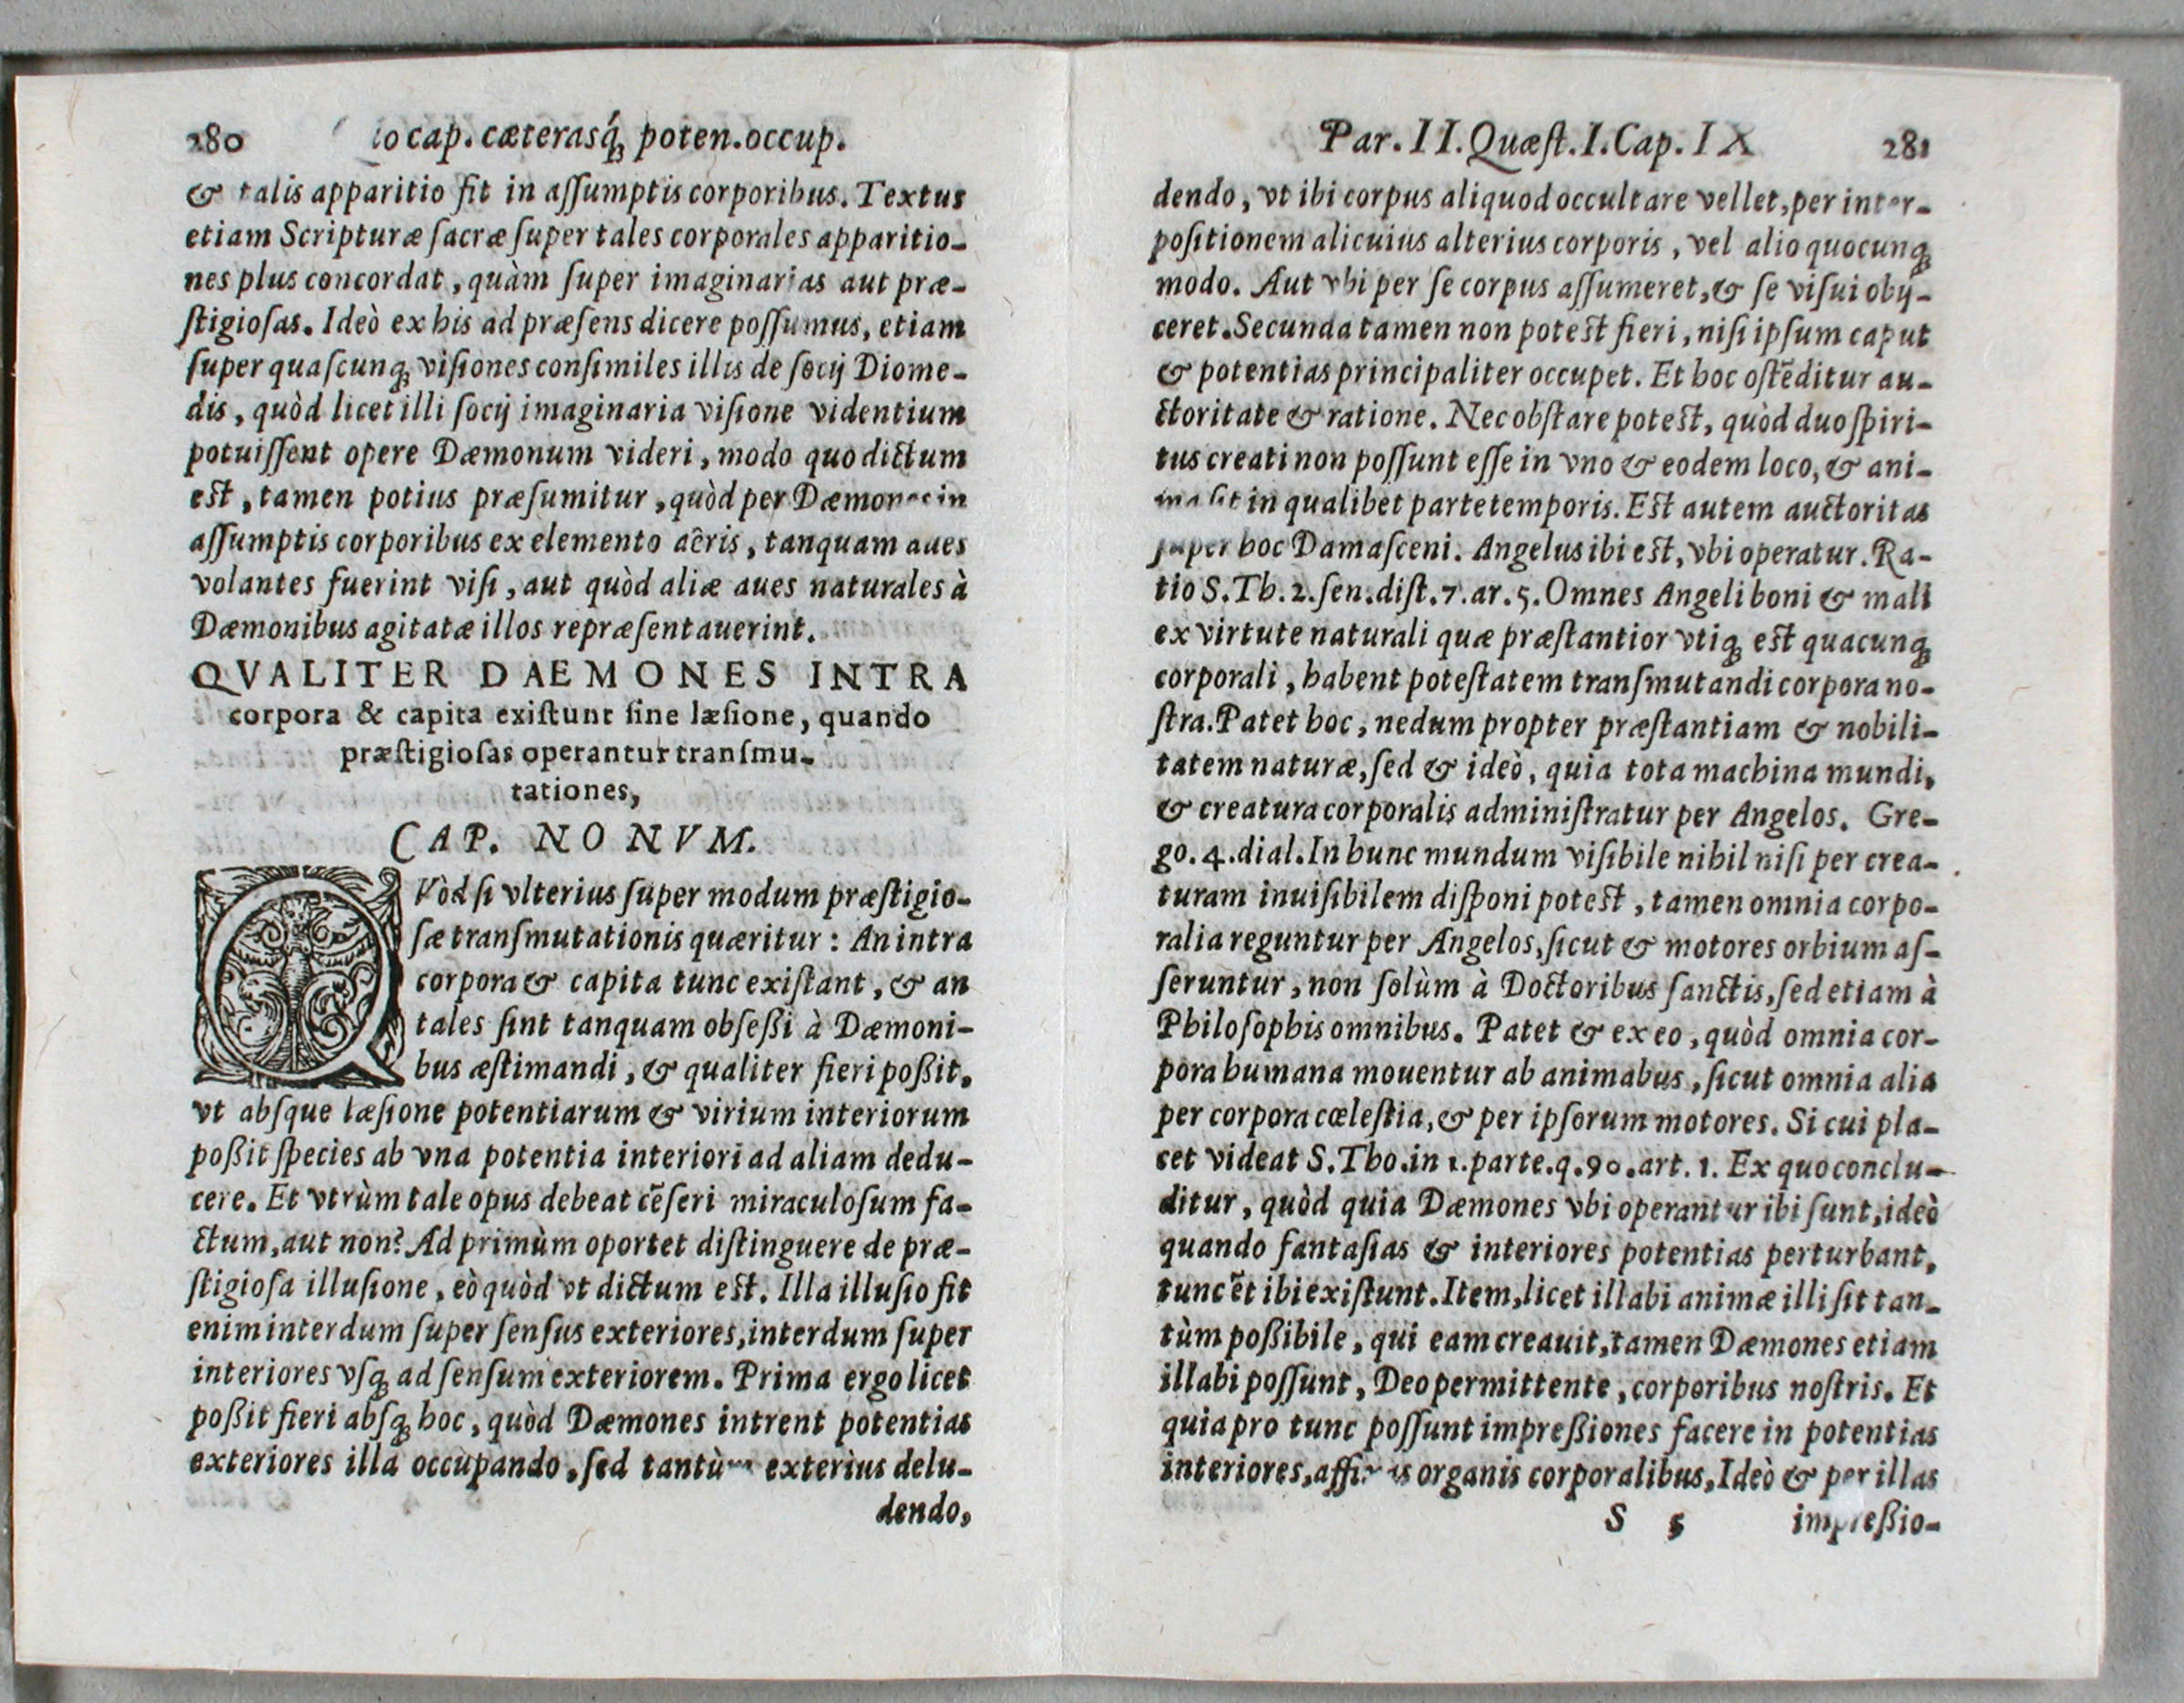 280 io cap. cæterasq́; poten. occup.
& talis apparitio fit in aſſumptis corporibus. Textus
etiam Scripturæ ſacræ ſuper tales corporales apparitio-
nes plus concordat, quàm ſuper imaginarias aut præ-
ſtigioſas. Ideò ex his ad præſens dicere poſſumus, etiam
ſuper quaſcunq; viſiones conſimiles illis de ſocij Diome-
dis, quòd licet illi ſocij imaginaria viſione videntium
potuiſſent opere Dæmonum videri, modo quo dictum
est, tamen potius præſumitur, quòd per Dæmones in
aſſumptis corporibus ex elemento aëris, tanquam aues
volantes fuerint viſi, aut quòd aliæ aues naturales à
Dæmonibus agitatæ illos repræſentauerint.
QVALITER DAEMONES INTRA
corpora & capita exiſtunt ſine læſione, quando
præſtigioſas operantur tranſmu-
tationes,
CAP. NONVM.
QVòd ſi vlterius ſuper modum præſtigio-
ſæ tranſmutationis quæritur: An intra
corpora & capita tunc exiſtant, & an
tales ſint tanquam obſeßi à Dæmoni-
bus æſtimandi, & qualiter fieri poßit,
vt abſque læſione potentiarum & virium interiorum
poßit ſpecies ab vna potentia interiori ad aliam dedu-
cere. Et vtrùm tale opus debeat cẽſeri miraculoſum fa-
ctum, aut non? Ad primùm oportet diſtinguere de præ-
ſtigioſa illuſione, eò quòd vt dictum est. Illa illuſio fit
enim interdum ſuper ſenſus exteriores, interdum ſuper
interiores vſq; ad ſenſum exteriorem. Prima ergo licet
poßit fieri abſq; hoc, quòd Dæmones intrent potentias
exteriores illa occupando, ſed tantùm exteriùs delu-
dendo,
Par. II. Quæſt. I. Cap. IX 281
dendo, vt ibi corpus aliquod occultare vellet, per inter-
poſitionem alicuius alterius corporis, vel alio quocunq;
modo. Aut vbi per ſe corpus aſſumeret, & ſe viſui obij-
ceret. Secunda tamen non potest fieri, niſi ipſum caput
& potentias principaliter occupet. Et hoc oſtẽditur au-
ctoritate & ratione. Nec obſtare potest, quòd duo ſpiri-
tus creati non poſſunt eſſe in vno & eodem loco, & ani-
ma ſit in qualibet parte temporis. Est autem auctoritas
ſuper hoc Damaſceni. Angelus ibi est, vbi operatur. Ra-
tio S. Th. 2. ſen. diſt. 7. ar. 5. Omnes Angeli boni & mali
ex virtute naturali quæ præſtantior vtiq; est quacunq;
corporali, habent poteſtatem tranſmutandi corpora no-
ſtra. Patet hoc, nedum propter præſtantiam & nobili-
tatem naturæ, ſed & ideò, quia tota machina mundi,
& creatura corporalis adminiſtratur per Angelos. Gre-
go. 4. dial. In hunc mundum viſibile nihil niſi per crea-
turam inuiſibilem diſponi potest, tamen omnia corpo-
ralia reguntur per Angelos, ſicut & motores orbium aſ-
ſeruntur, non ſolùm à Doctoribus ſanctis, ſed etiam à
Philoſophis omnibus. Patet & ex eo, quòd omnia cor-
pora humana mouentur ab animabus, ſicut omnia alia
per corpora cœleſtia, & per ipſorum motores. Si cui pla-
cet videat S. Tho. in 1. parte. q. 90. art. 1. Ex quo conclu-
ditur, quòd quia Dæmones vbi operantur ibi ſunt, ideò
quando fantaſias & interiores potentias perturbant,
tunc ẽt ibi exiſtunt. Item, licet illabi animæ illi ſit tan-
tùm poßibile, qui eam creauit, tamen Dæmones etiam
illabi poſſunt, Deo permittente, corporibus noſtris. Et
quia pro tunc poſſunt impreßiones facere in potentias
interiores, affixis organis corporalibus, Ideò & per illas
S 5 impreßio-